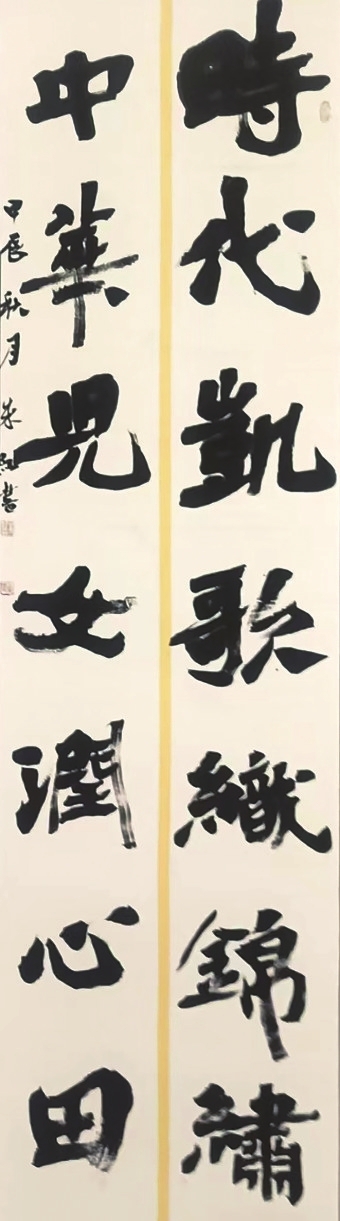 時代凱歌織錦繡
中華兒女潤心田
甲辰秋月朱紅書